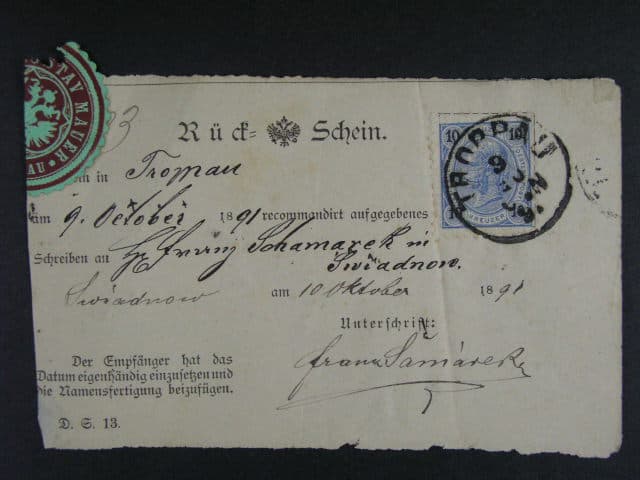 STAV MAUER
AU
93
Rück= Schein.
10 10
KREUZER
TROPPAU
9
in Troppau
am 9. October 1891 recommandirt aufgegebenes
Schreiben an Hr Franz Schamarek in
Swiadnow.
Swiadnow am 10 Oktober 1891
Unterschrift:
Franz Šamárek
Der Empfänger hat das
Datum eigenhändig einzusetzen und
die Namensfertigung beizufügen.
D. S. 13.